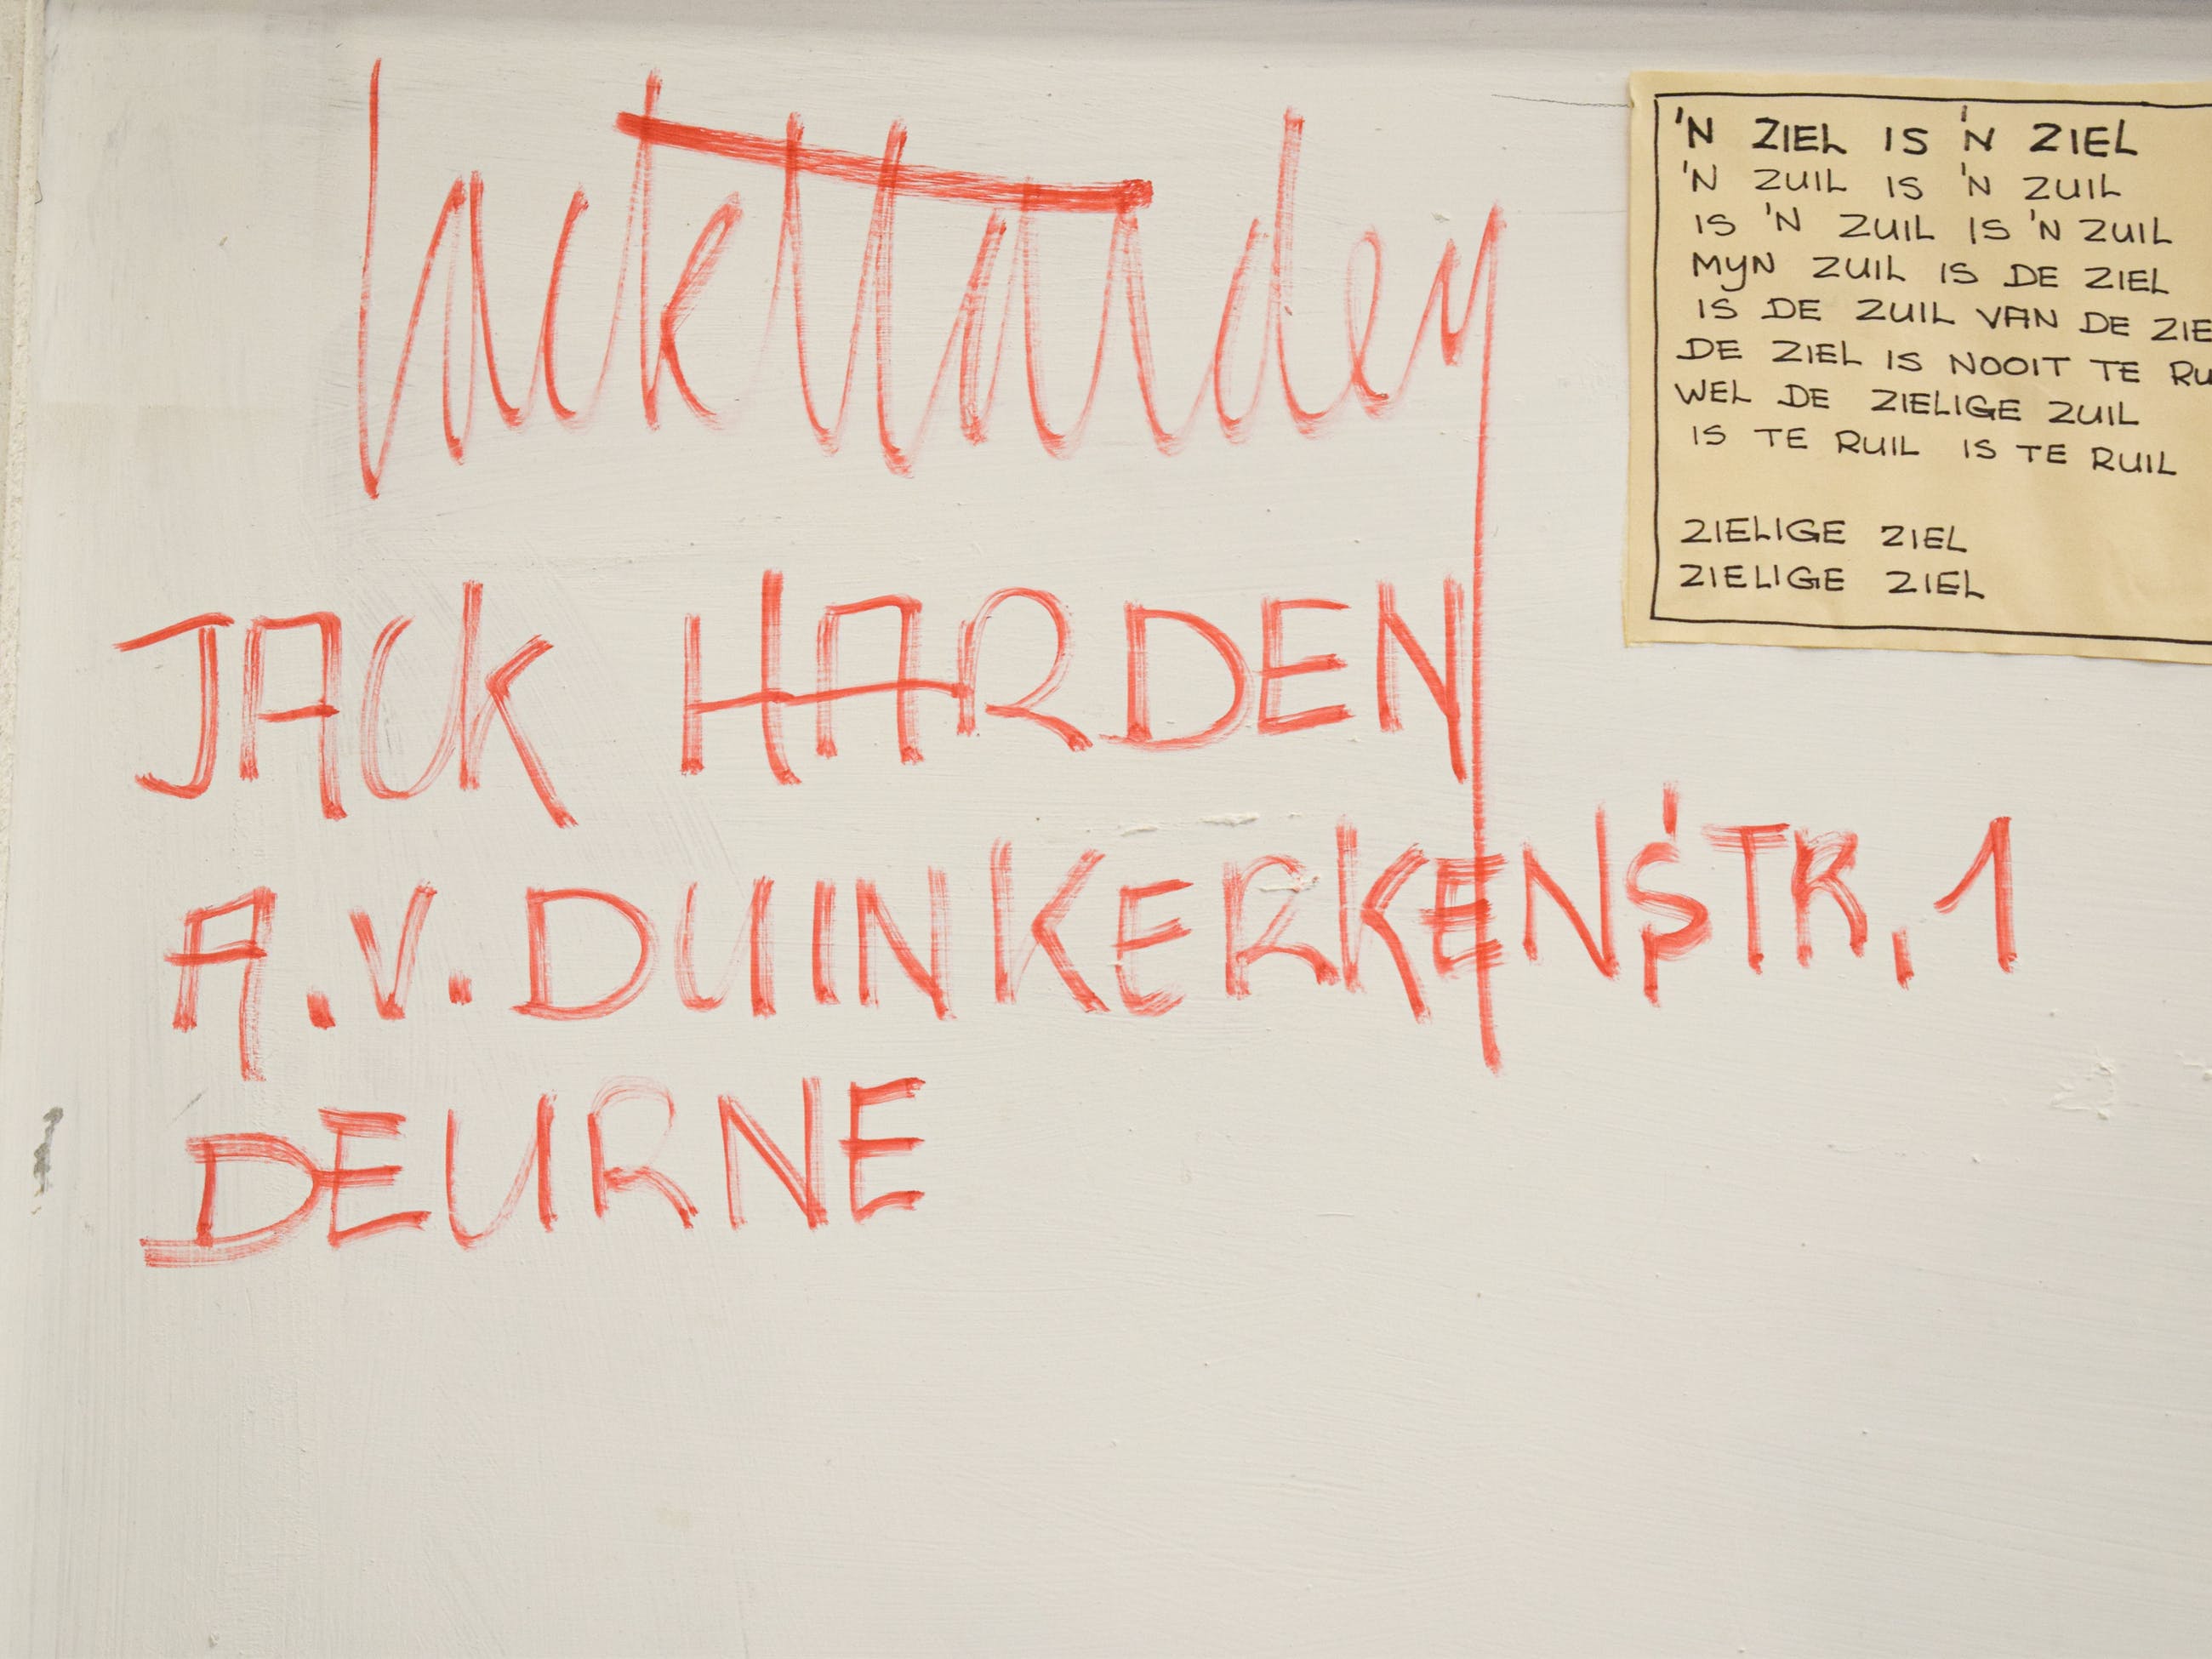 Jack Harden
JACK HARDEN
A.V. DUINKERKENSTR, 1
DEURNE
'N ZIEL IS 'N ZIEL
'N ZUIL IS 'N ZUIL
IS 'N ZUIL IS 'N ZUIL
MYN ZUIL IS DE ZIEL
IS DE ZUIL VAN DE ZIE
DE ZIEL IS NOOIT TE RU
WEL DE ZIELIGE ZUIL
IS TE RUIL IS TE RUIL
ZIELIGE ZIEL
ZIELIGE ZIEL